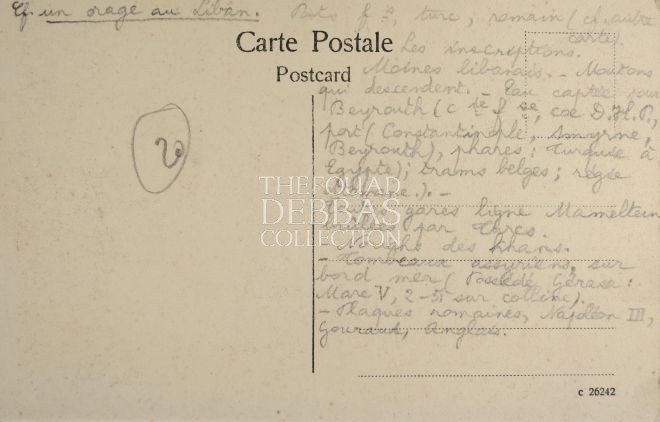 Cf un orage au Liban. Ponts fs, turc, romain (cf. autre
carte).
Carte Postale
Postcard
Les inscriptions.
Moines libanais. - Moutons
qui descendent. - Eau captée pour
Beyrouth (Cie fse, coe D.H.P.,
port (Constantinople, Smyrne,
Beyrouth), phares: Turquie à
Egypte); trams belges; régie
ottomane.). -
Toutes gares ligne Mameltein
brûlées par Turcs.
Neighe des khans.
- Tombeaux assyriens, sur
bord mer (Possédé Gérasa:
Marc V, 2-5 sur colline).
- Plaques romaines, Napoléon III,
Gouraud, Anglais.
20
THE FOUAD
DEBBAS
COLLECTION
c 26242